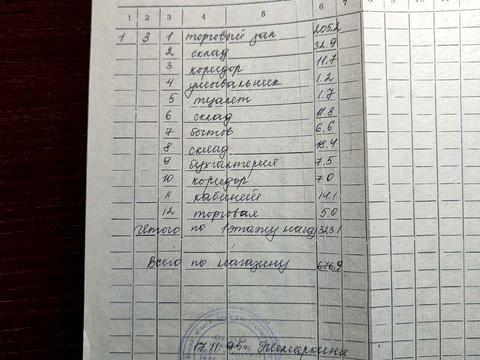 1 2 3 4 5 6 7
1 3 1 торговый зал 205.2
2 склад 32.9
3 коридор 11.7
4 умывальник 1.2
5 туалет 1.7
6 склад 11.8
7 бытов 6,6
8 склад 18.4
9 бухгалтерия 7,5
10 коридор 7.0
11 кабинет 14.1
12 торговая 5.0
Итого по 1 этажу мага 323.1
Всего по магазину 676.9
17.11.95г.